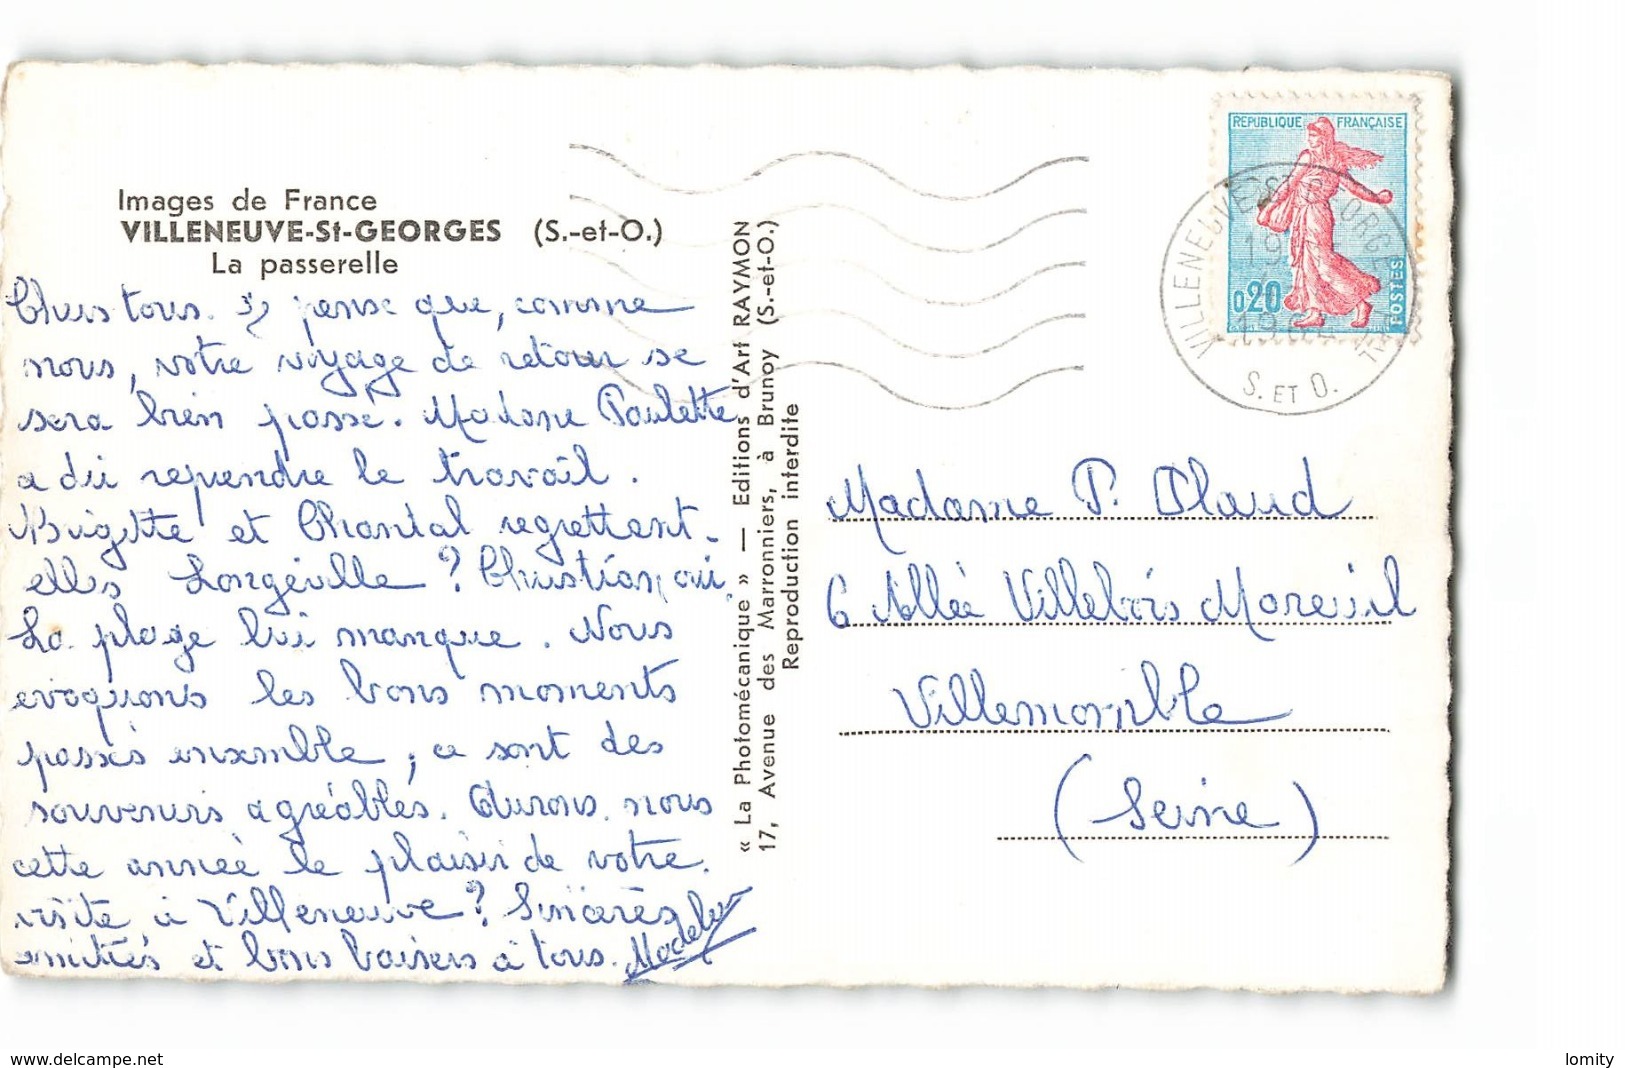 Images de France
VILLENEUVE-St-GEORGES (S.-et-O.)
La passerelle
Chers tous. J'y pense que, comme
nous, votre voyage de retour se
sera bien passé. Madame Paulette
a dû reprendre le travail.
Brigitte et Chantal regrettent-
elles Longeville ? Christian, oui,
La plage lui manque. Nous
evoquons les bons moments
passés ensemble, ce sont des
souvenirs agréables. Aurons-nous
cette année le plaisir de votre
visite à Villeneuve ? Sincères
amitiés et bons baisers à tous.
« La Photomécanique » — Editions d'Art RAYMON
17, Avenue des Marronniers, à Brunoy (S.-et-O.)
Reproduction interdite
REPUBLIQUE FRANÇAISE
0,20
POSTES
VILLENEUVE ST GEORGES PAL
S. ET O.
Madame P. Plaud
6 Allée Villebois Moreuil
Villemomble
(Seine)
www.delcampe.net
lomity